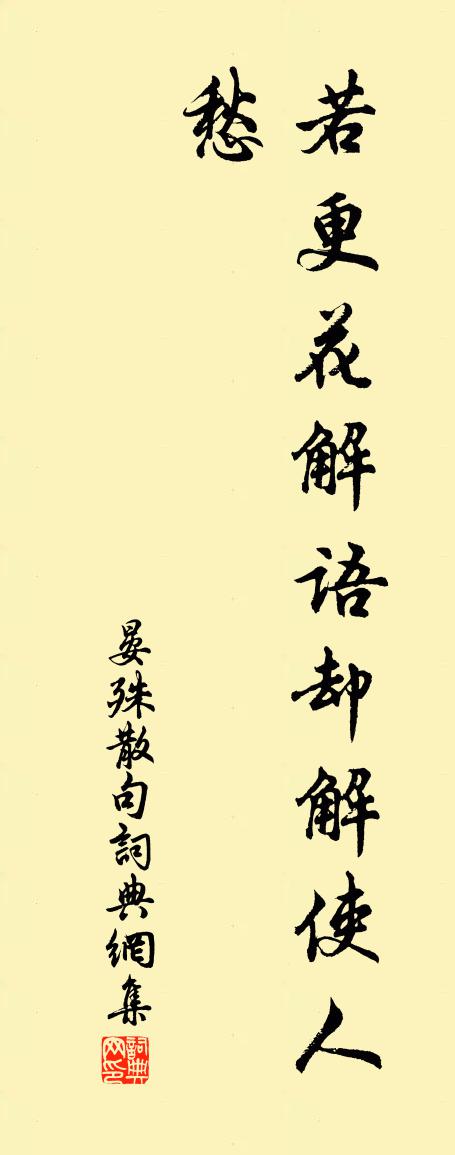 若更花解語却解使人
愁
晏殊散句詞典網集
詞典网印